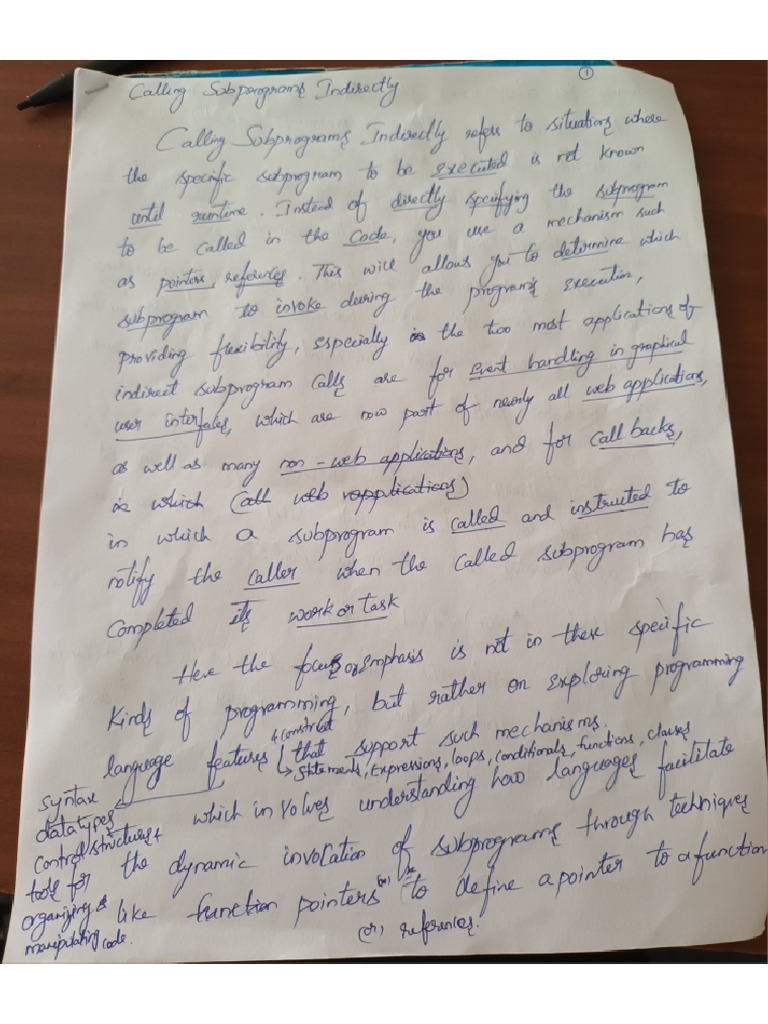 ①
Calling Subprograms Indirectly
Calling Subprograms Indirectly refers to situations where
the specific subprogram to be executed is not known
until runtime. Instead of directly specifying the subprogram
to be called in the Code, you use a mechanism such
as pointers, references. This will allows you to determine which
subprogram to invoke during the program's execution,
providing flexibility, especially the two most applications of
indirect subprogram calls are for Event handling in graphical
user interfaces, which are now part of nearly all web applications,
as well as many non-web applications, and for call backs,
in which (call web rapplications)
in which a subprogram is called and instructed to
notify the caller when the called subprogram has
Completed its work or task
Here the focus or emphasis is not in these specific
Kinds of programming, but rather on exploring programming
& construct
language features that support such mechanisms.
→ Statements, Expressions, loops, conditionals, functions, classes
syntax
datatypes
control structures +
tools for
organizing &
manipulating code.
which involves understanding how languages facilitate
the dynamic invocation of subprograms through techniques
like function pointers to define a pointer to a function
(or) references.